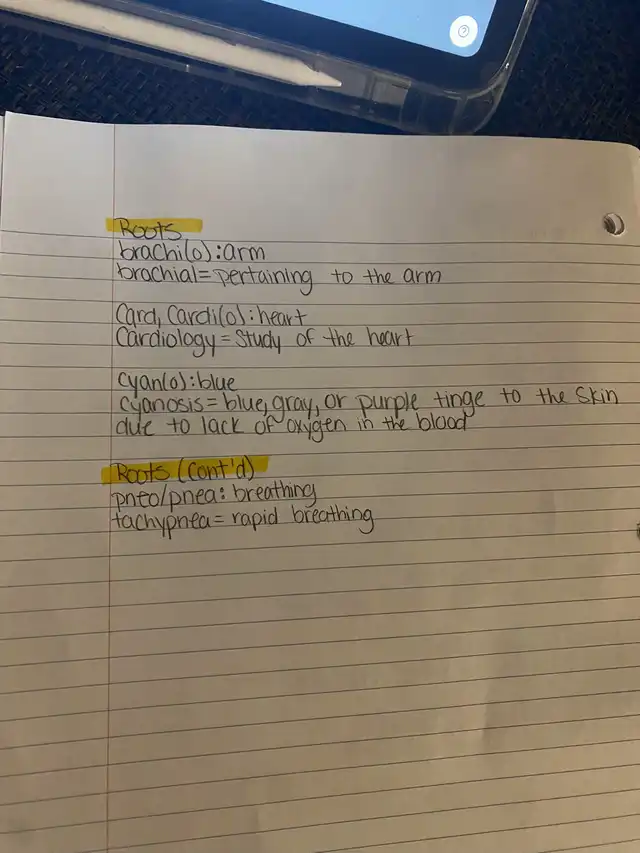 Roots
brachi(o): arm
brachial = pertaining to the arm
Card, Cardi(o): heart
Cardiology = Study of the heart
Cyan(o): blue
cyanosis = blue, gray, or purple tinge to the skin
due to lack of oxygen in the blood
Roots (Cont'd)
pneo/pnea: breathing
tachypnea = rapid breathing